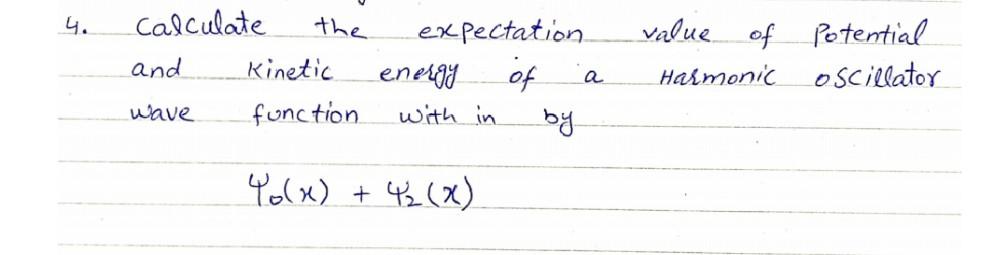 4. Calculate the expectation value of Potential
and Kinetic energy of a Harmonic oscillator
wave function with in by
Ψ₀(x) + Ψ₂(x)